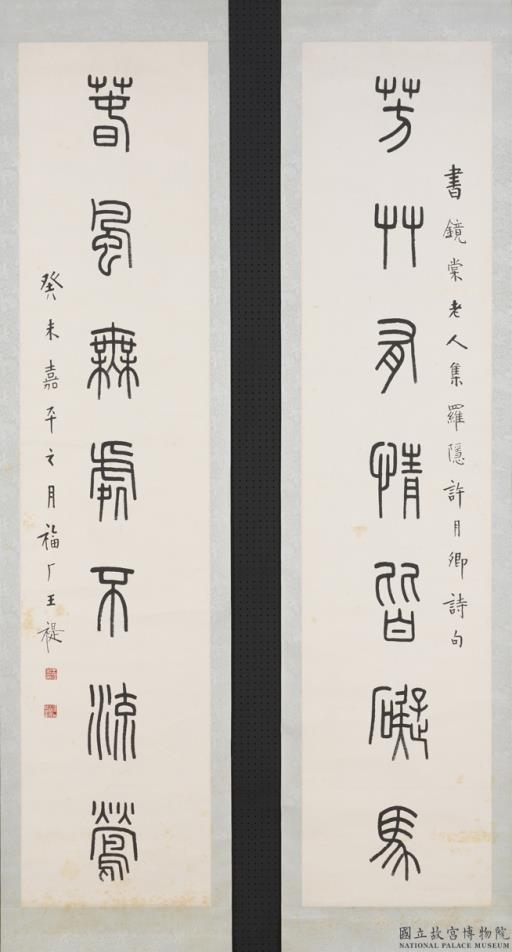 芳艸有情皆礙馬
書鏡棠老人集羅隱許月卿詩句
春風無處不流鶯
癸未嘉平之月福厂王禔
國立故宮博物院
NATIONAL PALACE MUSEUM